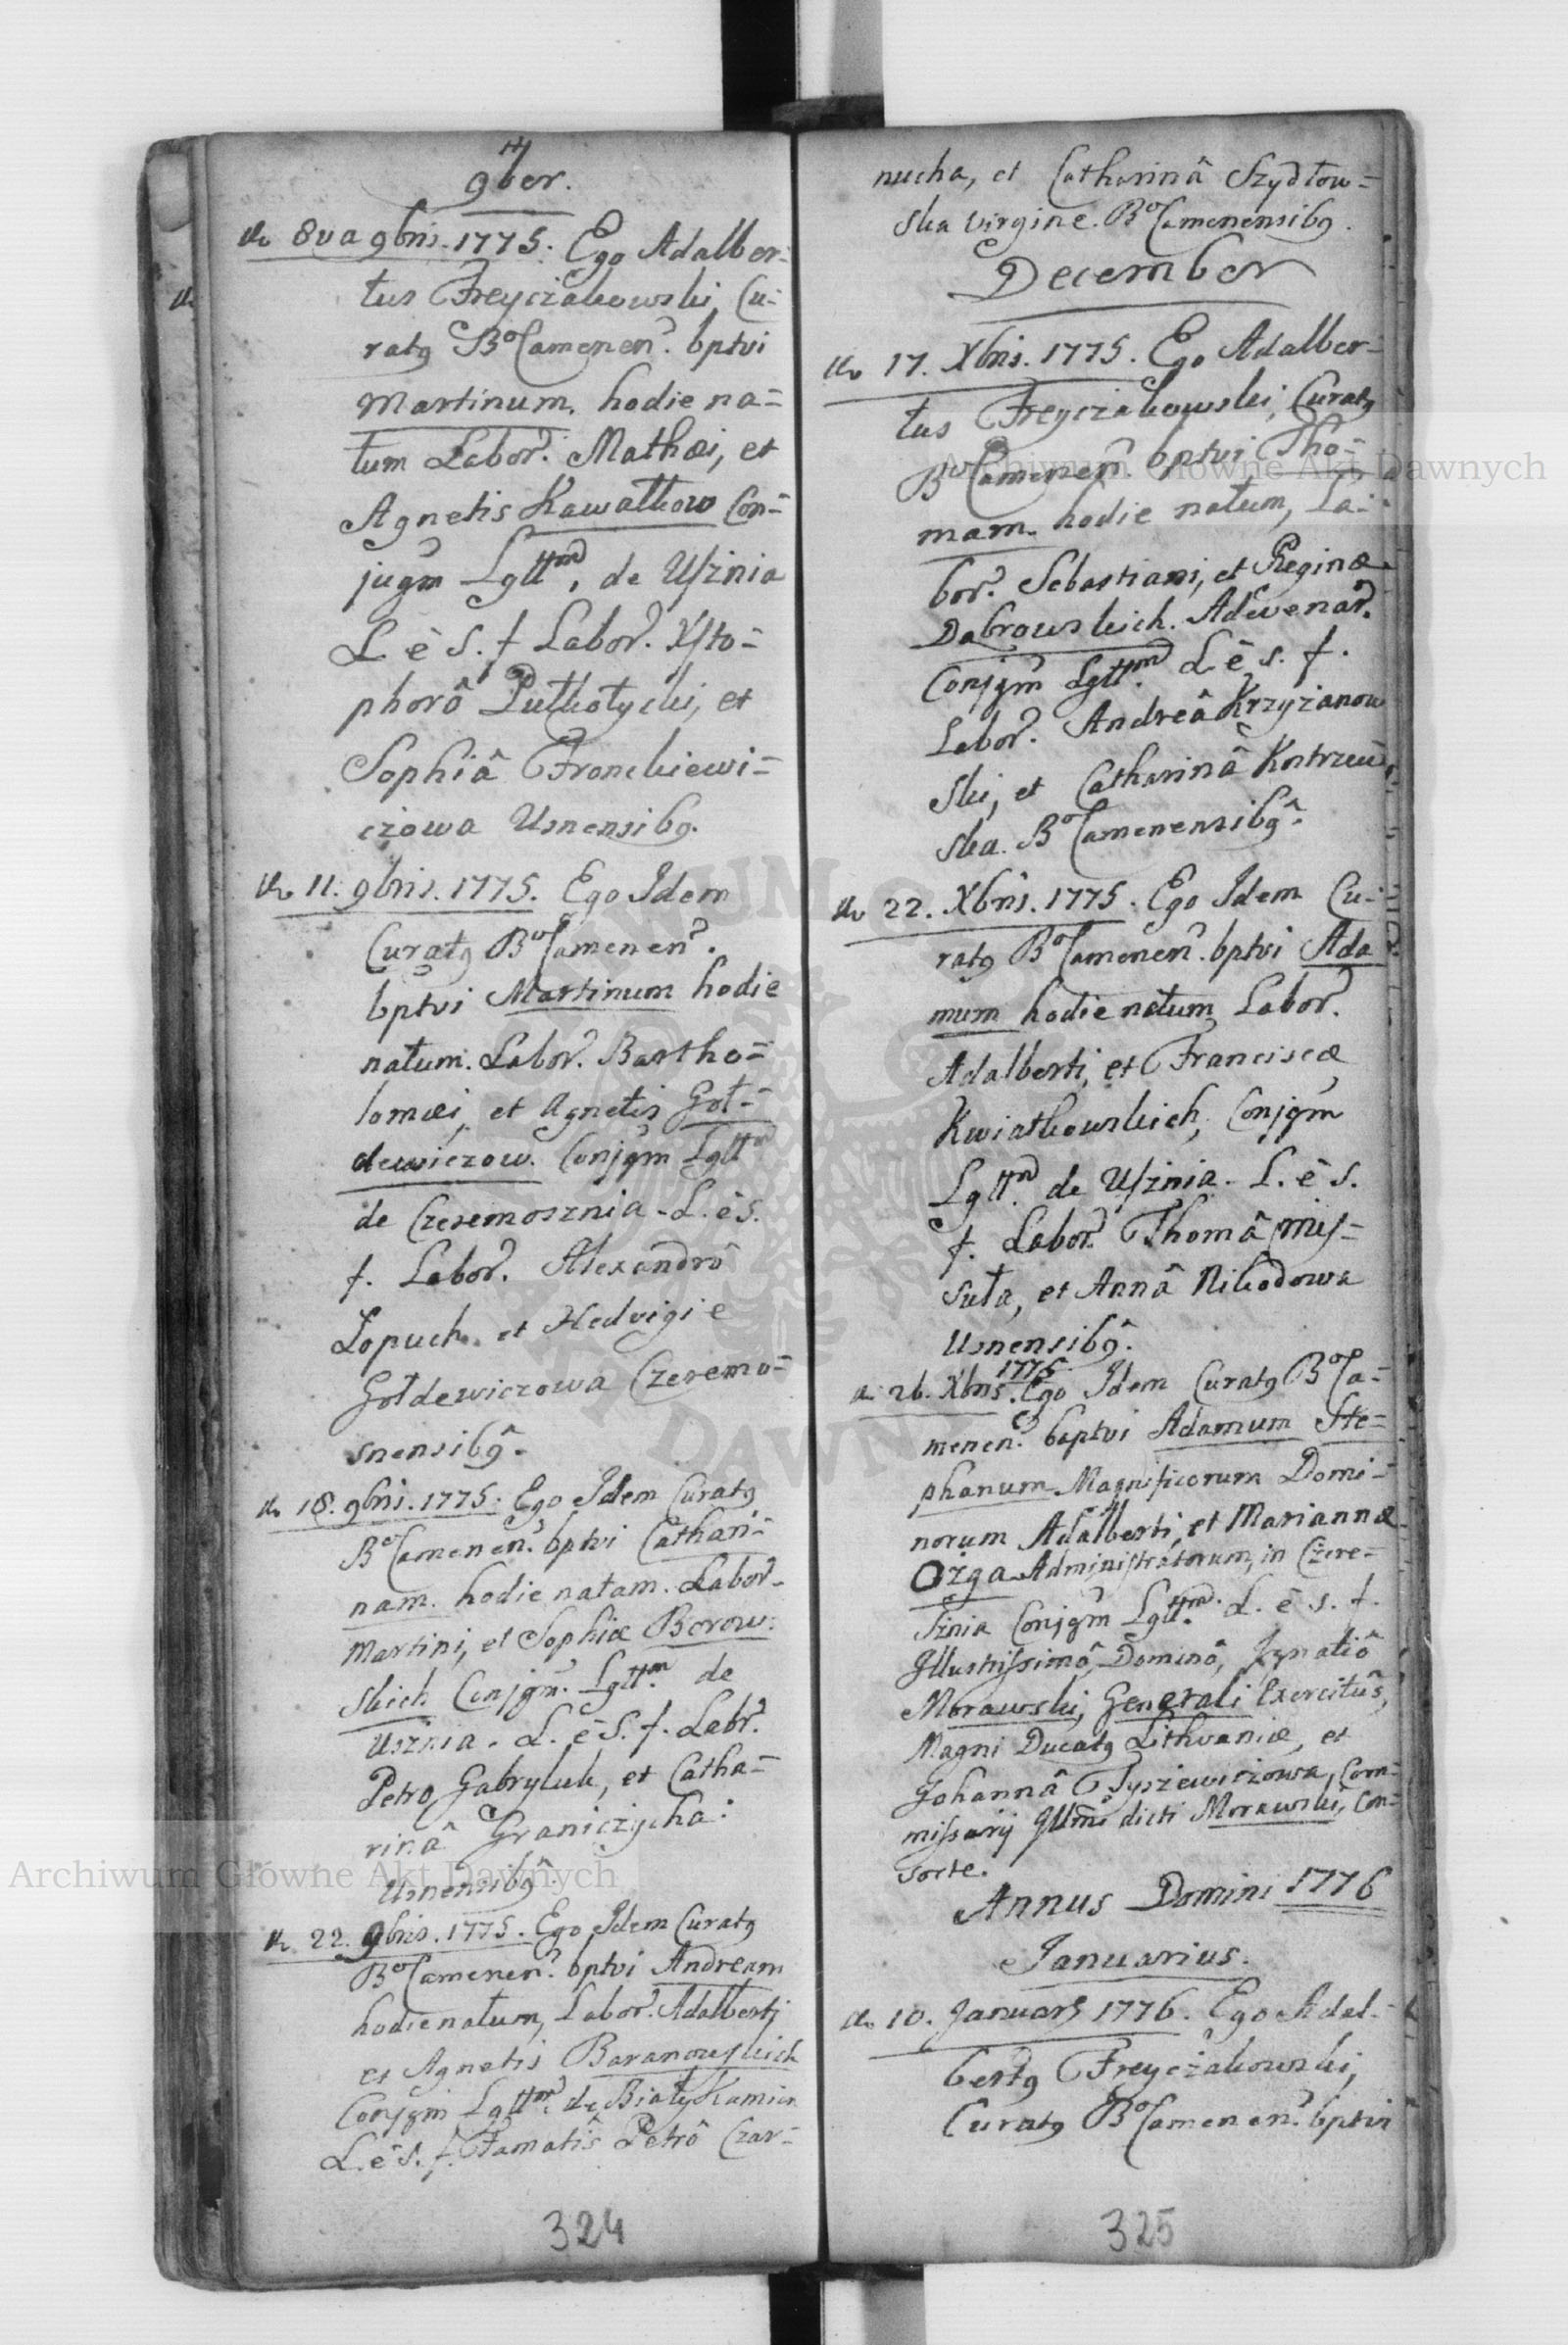 9ber.
8va 9bris. 1775. Ego Adalber=
tus Freyczakowski, Cu=
ratg BoCamenen. bptvi
Martinum, hodie na=
tum Labor. Mathæi, et
Agnetis Kawałkow Con=
jugm Lgttm, de Usznia
L è S. f Labor. Xsto=
phorô Putkotycki, et
Sophiâ Franckiewi=
czowa Usnensibg.
11. 9bris. 1775. Ego Idem
Curatg BoCamenen.
bptvi Martinum hodie
natum. Labor. Bartho=
lomæi, et Agnetis Goł=
dewiczow. Conjgm Lgttm
de Czeremosznia. L. è S.
f. Labor. Alexandrô
Lopuch. et Hedvigie
Gołdewiczowa Czeremo=
snensibg.
18. 9bris. 1775. Ego Idem Curatg
BoCamenen. bptvi Cathari=
nam. hodie natam. Labor.
Martini, et Sophiæ Borow=
skich Conjgm. Lgttm. de
Usznia. L. è S. f. Labr.
Petro Gabryluk, et Catha=
rinâ Graniczycha.
Usnensibg.
22. 9bris. 1775. Ego Idem Curatg
BoCamenen. bptvi Andream
hodie natum, Labor. Adalberti
et Agnetis Baranowskich
Conjgm Lgttm. de Biały Kamien
L. è S. f. Famatis Petrô Czar=
324
nucha, et Catharinâ Szydłow=
ska virgine. BoCamenensibg.
December
17. Xbris. 1775. Ego Adalber=
tus Freyczakowski, Curatg
BoCamenen. bptvi Tho=
mam. hodie natum, La=
bor. Sebastiani, et Reginæ
Dabrowskich. Advenar.
Conjgm Lgttm. L è S. f.
Labor. Andreâ Krzyzanow
ski, et Catharinâ Kostrzew
ska. BoCamenensibg.
22. Xbris. 1775. Ego Idem Cu=
ratg BoCamenen. bptvi Ada
mum hodie natum Labor.
Adalberti, et Franciscæ
Kwiatkowskich, Conjgm
Lgttm. de Usznia. L. è S.
f. Labor. Thomâ Mis=
suła, et Annâ Nikodowa
Usnensibg.
1775
26. Xbris. Ego Idem Curatg BoCa=
menen. baptvi Adamum Ste=
phanum Magnificorum Domi=
norum Adalberti, et Mariannæ
Ożga Administratorum, in Czere=
sznia Conjgm Lgttm. L. è S. f.
Illustrissimô, Dominô, Ignatiô
Morawski, Generali Exercitûs,
Magni Ducatg Lithvaniæ, et
Johannâ Tyszewiczowa, Com=
missarij Illmi dicti Morawski, Con=
sorte.
Annus Domini 1776
Januarius.
10. Januarÿ 1776. Ego Adal=
bertg Freyczakowski,
Curatg BoCamenen. bptvi
325
Archiwum Główne Akt Dawnych
Archiwum Główne Akt Dawnych